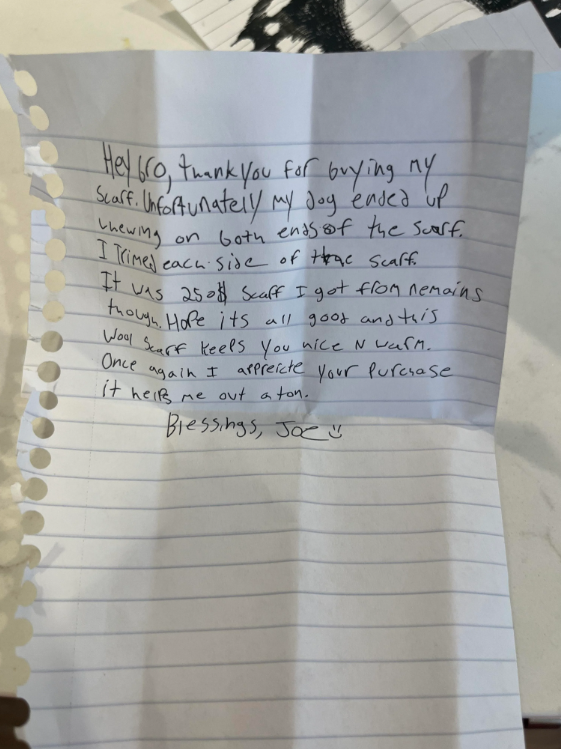 Hey bro, thank you for buying my
scarf. Unfortunately my dog ended up
chewing on both ends of the scarf.
I Trimed each side of the scarf.
It was 250$ scarf I got from nemains
though. Hope its all good and this
wool scarf keeps you nice N warm.
Once again I appreicte your purchase
it helps me out a ton.
Blessings, Joe